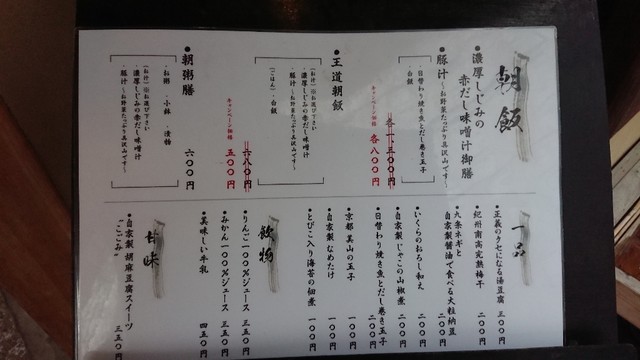 朝飯
●濃厚しじみの
赤だし味噌汁御膳
●豚汁〜お野菜たっぷり具沢山です〜
・日替わり焼き魚とだし巻き玉子
・白飯
各一三〇〇円
キャンペーン価格 各八〇〇円
●王道朝飯
(お汁) ※お選び下さい
・濃厚しじみの赤だし味噌汁
・豚汁〜お野菜たっぷり具沢山です〜
(ごはん)・白飯
六八〇円
キャンペーン価格 五〇〇円
●朝粥膳 六〇〇円
・お粥 ・小鉢 ・漬物
(お汁) ※お選び下さい
・濃厚しじみの赤だし味噌汁
・豚汁〜お野菜たっぷり具沢山です〜
一品
●正義のクセになる湯豆腐 三〇〇円
●紀州南高完熟梅干 二〇〇円
●九条ネギと
自家製醤油で食べる大粒納豆 二〇〇円
●いくらのおろし和え 二〇〇円
●自家製じゃこの山椒煮 二〇〇円
●日替わり焼き魚とだし巻き玉子 二〇〇円
●京都美山の玉子 一〇〇円
●自家製なめたけ 一〇〇円
●とびこ入り海苔の佃煮 一〇〇円
飲物
●りんご一〇〇%ジュース 三五〇円
●みかん一〇〇%ジュース 三五〇円
●美味しい牛乳 四五〇円
甘味
●自家製 胡麻豆腐スイーツ
「ごごみ」 三五〇円